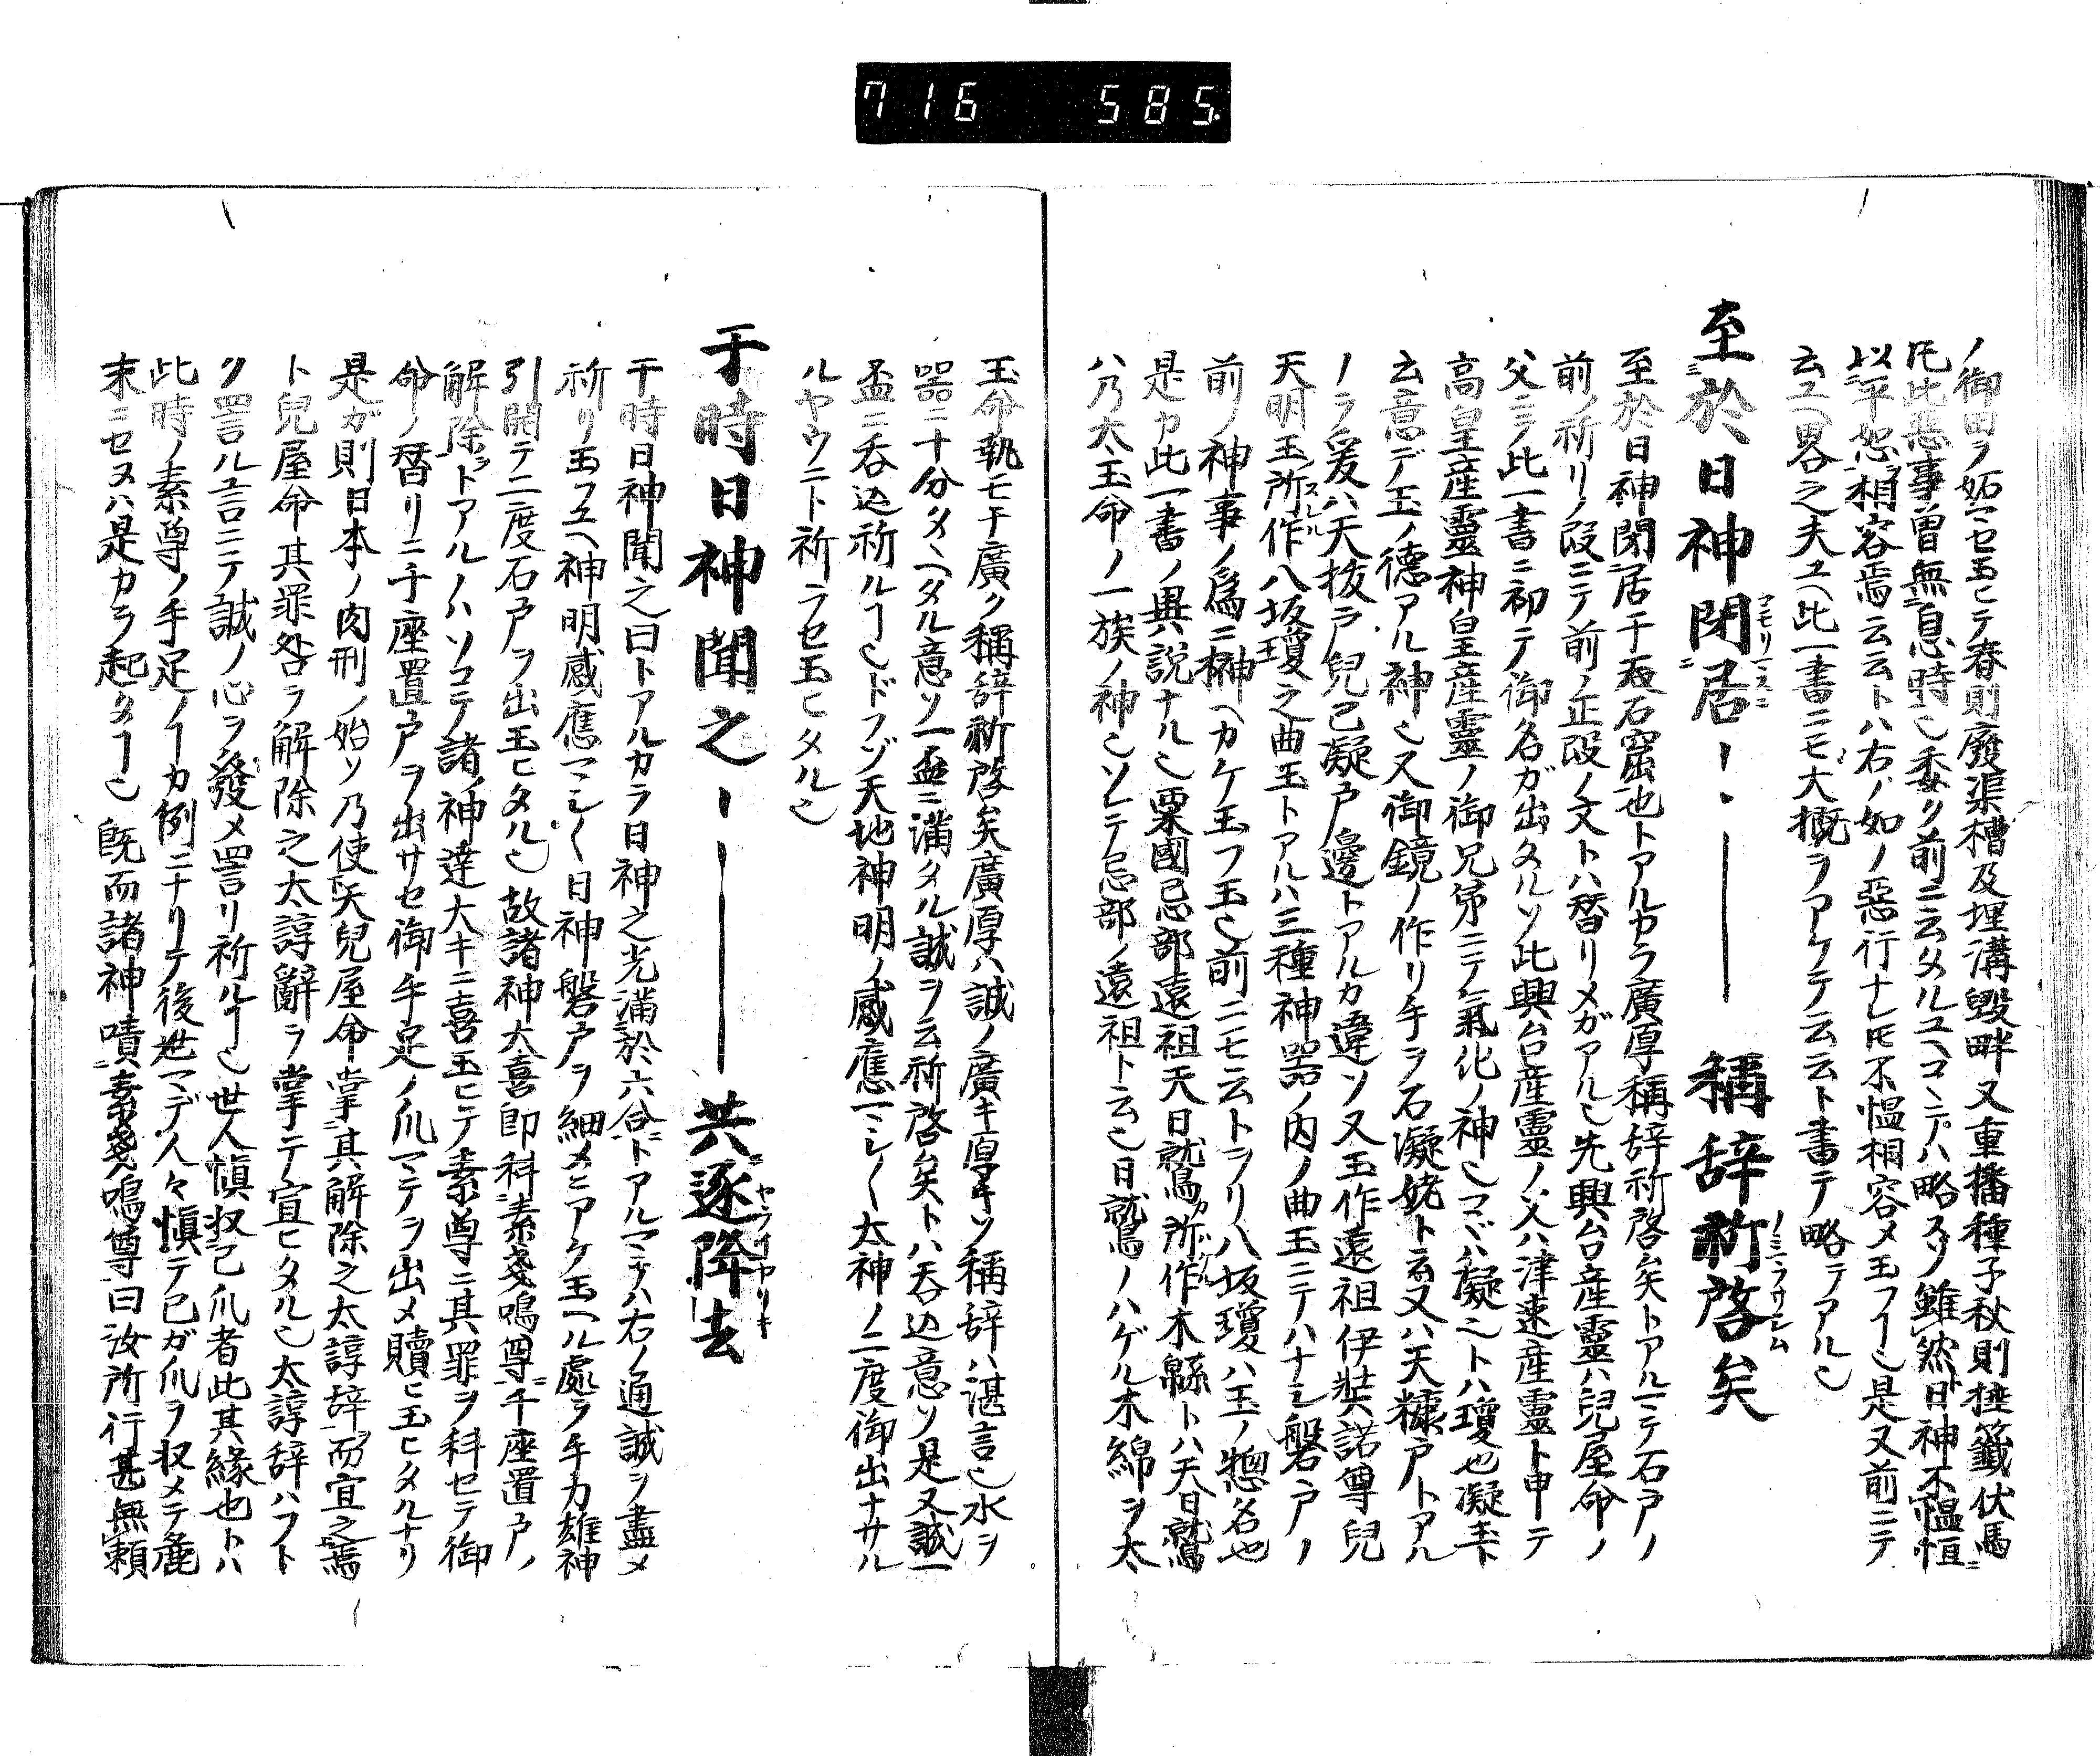 716 585
ノ御田ヲ妬マセ玉ヒテ春則廢渠槽及埋溝毀畔又重播種子秋則捶籤伏馬
凡此惡事曽無息時也委ク前ニ云タルユヘコヽニテハ略スソ雖然日神不慍恒
以平恕相容焉云云トハ右ノ如ノ惡行ナレ𪜈不慍相容メ玉フヿ也是又前ニテ
云ユヘ畧之夫ユヘ此一書ニモ大概ヲアケテ云云ト書テ略テアル也
至於日神閉居ーーー稱辞祈啓矣
至於日神閉居于天石窟也トアルカラ廣厚稱辞祈啓矣トアルマテ石戸ノ
前ノ祈リノ段ニテ前ノ正段ノ文トハ替リメガアル也先興台産靈ハ兒屋命ノ
父ニテ此一書ニ初テ御名ガ出タルソ此興台産靈ノ父ハ津速産靈ト申テ
高皇産靈神皇産靈ノ御兄弟ニテ氣化ノ神也マヽハ凝ニトハ瓊也凝玉ト
云意デ玉ノ德アル神也又御鏡ノ作リ手ヲ石凝姥ト云又ハ天糠戸トアル
ノラ爰ハ天抜ラ兒己凝戸邊トアルカ違ソ又玉作遠祖伊奘諾尊兒
天明玉所作八坂瓊之曲玉トアルハ三種神器ノ内ノ曲玉ニテハナシ磐戸ノ
前ノ神事ノ爲ニ榊ヘカケ玉フ玉也前ニモ云トヲリ八坂瓊ハ玉ノ惣名也
是カ此一書ノ異説ナル也粟國忌部遠祖天日鷲所作木綿トハ天日鷲
ハ乃太玉命ノ一族ノ神也ソレテ忌部ノ遠祖ト云也日鷲ノハゲル木綿ヲ太
玉命執モチ廣ク稱辞祈啓矣廣厚ハ誠ノ廣キ厚キソ稱辞ハ湛言也水ヲ
器ニ十分タヽヘタル意ソ一盃ニ滿タル誠ヲ云祈啓矣トハ吞込意ソ是又誠一
盃ニ吞込祈ルヿ也ドフゾ天地神明ノ感應マシマシ太神ノ二度御出ナサル
ルヤウニト祈ラセ玉ヒタル也
于時日神聞之ーーー共逐降去
于時日神聞之曰トアルカラ日神之光滿於六合トアルマテハ右ノ通誠ヲ盡メ
祈リ玉フユヘ神明感應マシマシ日神磐戸ヲ細メニアケ玉ヘル處ヲ手力雄神
引開テ二度石戸ヲ出玉ヒタル也故諸神大喜即科素戔嗚尊千座置戸ノ
解除トアルノハソコテ諸ノ神達大キニ喜玉ヒテ素尊ニ其罪ヲ科セテ御
命ノ替リニ千座置戸ヲ出サセ御手足ノ爪マテヲ出メ贖ヒ玉ヒタルナリ
是ガ則日本ノ肉刑ノ始ソ乃使天兒屋命掌其解除之太諄辞而宣之焉
ト兒屋命其罪咎ヲ解除之太諄辭ヲ掌テ宣ヒタル也太諄辞ハフト
ク詈ル言ニテ誠ノ心ヲ發メ詈リ祈ルヿ也世人愼収己爪者此其緣也トハ
此時ノ素尊ノ手足ノヿカ例ニナリテ後世マデ人々愼テ己ガ爪ヲ収メテ麁
末ニセヌハ是カラ起タヿ也 既而諸神嘖素戔嗚尊曰汝所行甚無頼